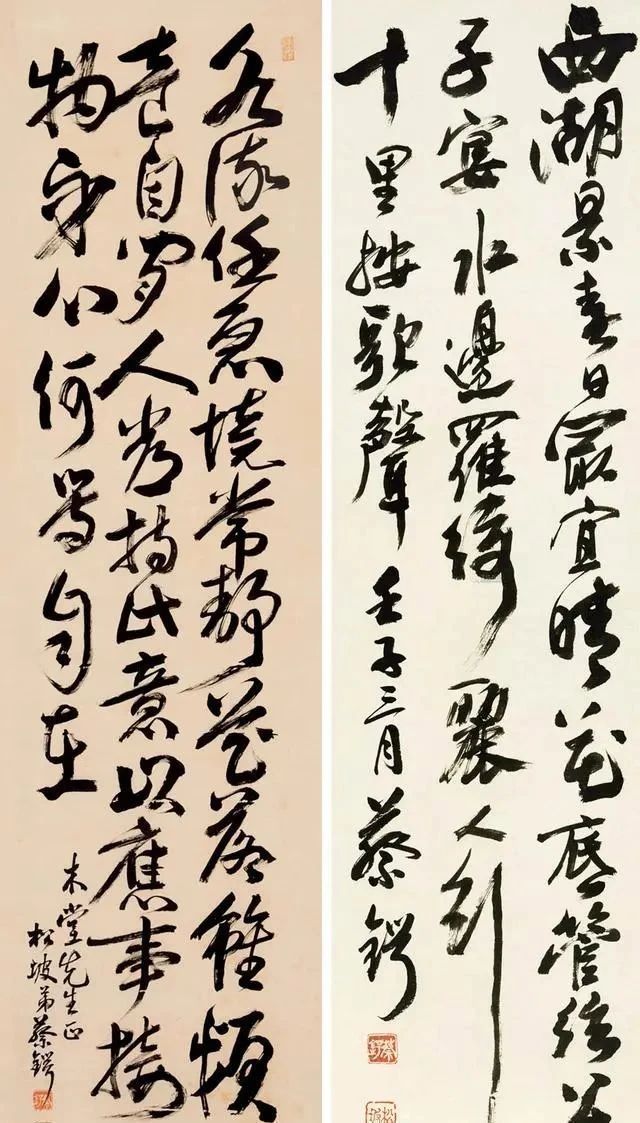 西湖景春日最宜晴花底管絃公
子宴水邊羅綺麗人行
十里按歌聲 壬子三月蔡鍔
蔡鍔
松坡
水流任急境常靜花落雖頻
意自閒人常持此意以應事接
物身心何等自在
木堂先生正
松坡弟蔡鍔